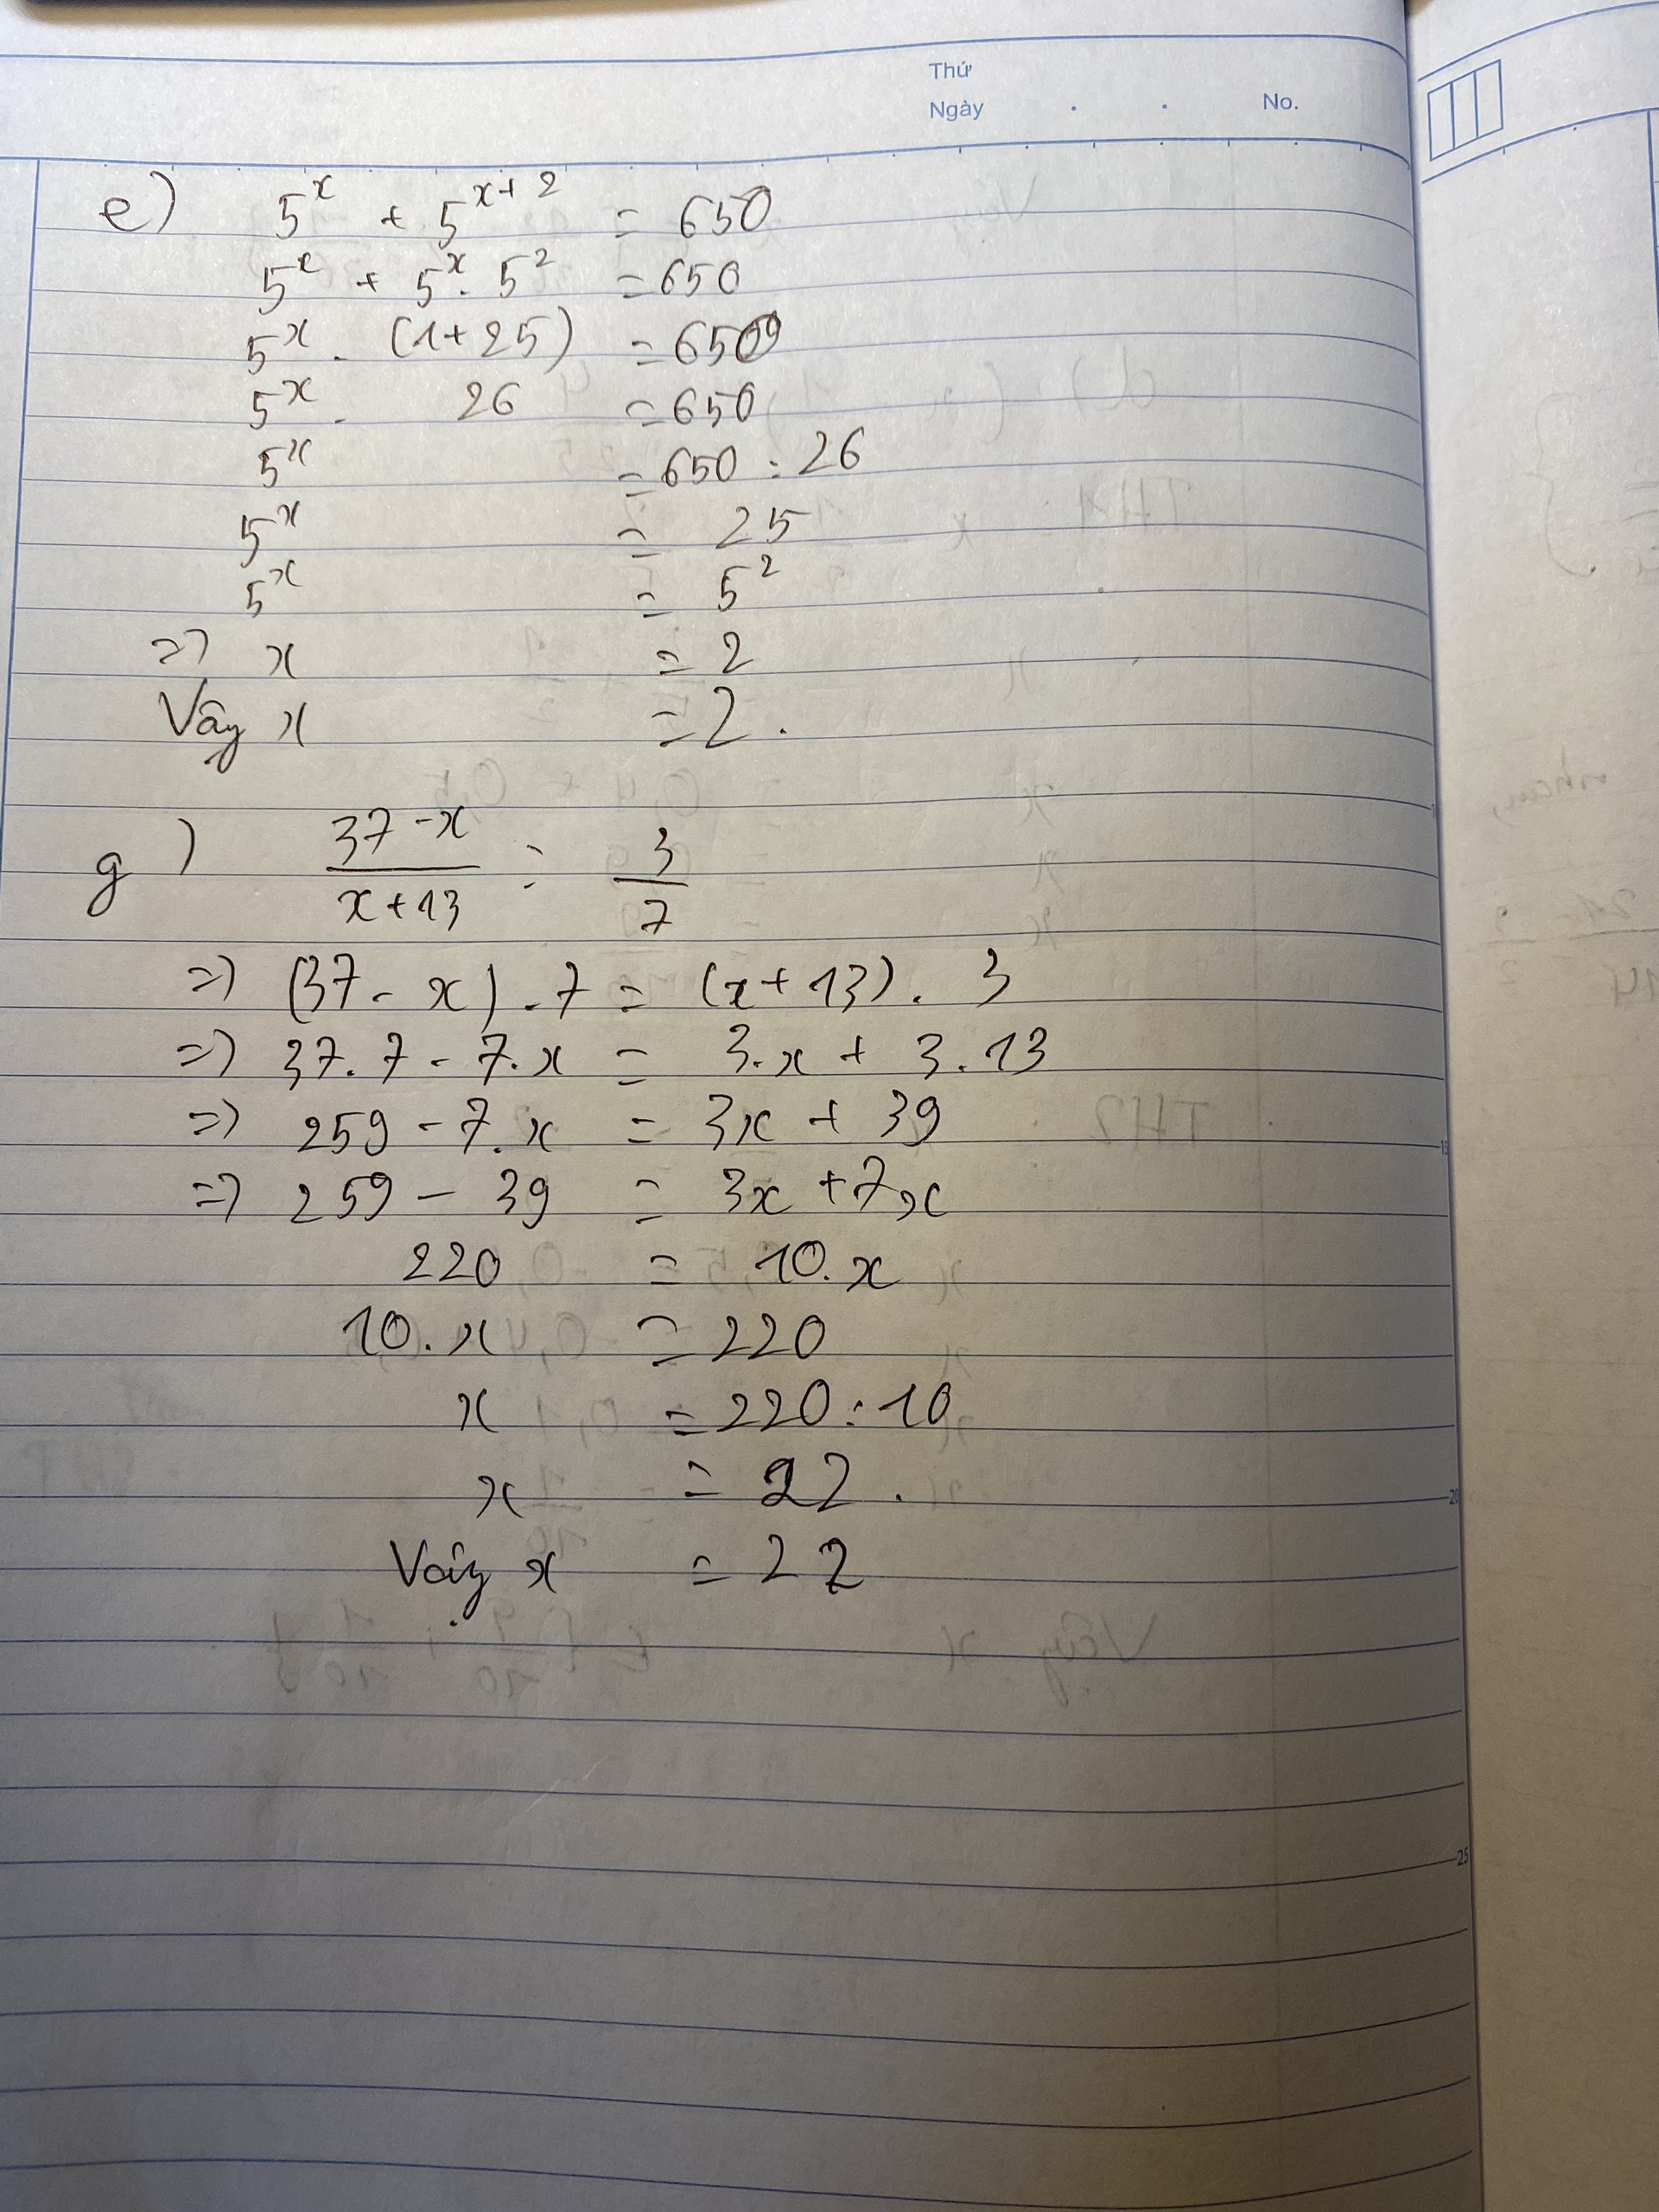 Thứ
Ngày . . No.
e) 5^x + 5^{x+2} = 650
5^x + 5^x . 5^2 = 650
5^x . (1+25) = 650
5^x . 26 = 650
5^x = 650 : 26
5^x = 25
5^x = 5^2
=> x = 2
Vậy x = 2.
g) \frac{37-x}{x+13} = \frac{3}{7}
=> (37 - x) . 7 = (x+13) . 3
=> 37.7 - 7.x = 3.x + 3.13
=> 259 - 7.x = 3x + 39
=> 259 - 39 = 3x + 7x
220 = 10.x
10.x = 220
x = 220 : 10
x = 22.
Vậy x = 22
15
20
25